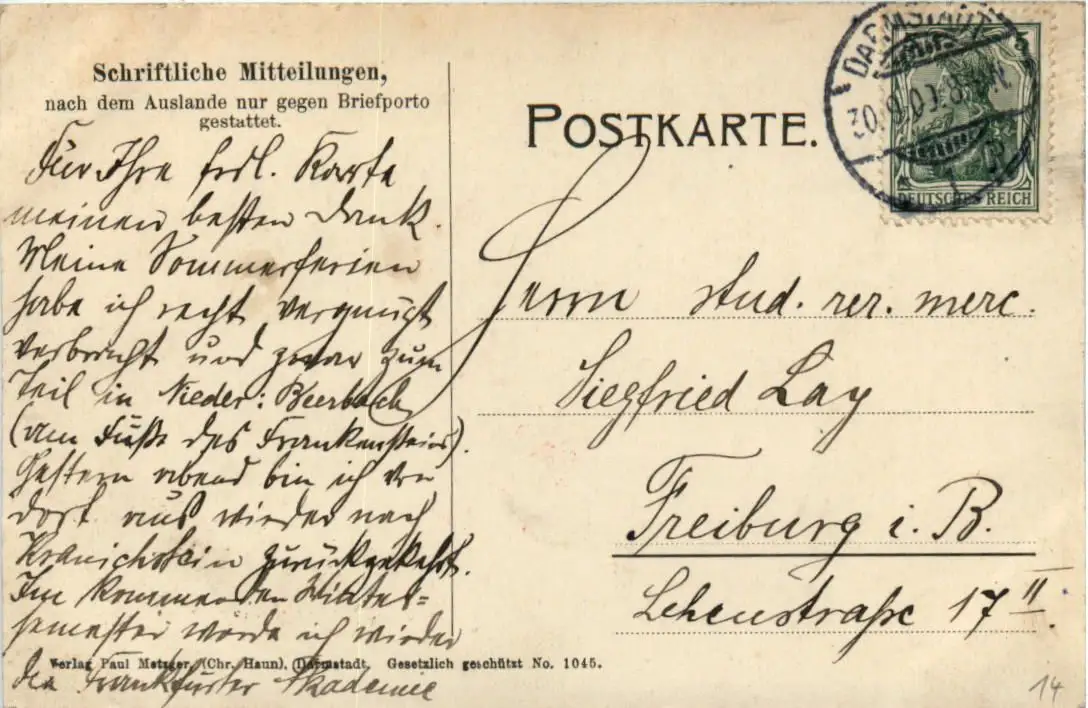 Schriftliche Mitteilungen,
nach dem Auslande nur gegen Briefporto
gestattet.
Für Ihre frdl. Karte
meinen besten Dank.
Meine Sommerferien
habe ich recht vergnügt
verbracht und zwar zum
Teil in Nieder-Beerbach
(am Fuße des Frankensteins).
Gestern abend bin ich von
dort aus wieder nach
Kranichstein zurückgekehrt.
Im kommenden Winter=
semester werde ich wieder
die Frankfurter Akademie
Verlag Paul Metzger, (Chr. Haun), Darmstadt. Gesetzlich geschützt No. 1045.
POSTKARTE.
DARMSTADT
30.9.09. 8-9N.
1
5
5
DEUTSCHES REICH
Herrn stud. rer. merc.
Siegfried Lay
Freiburg i. B.
Lehenstraße 17 II
14